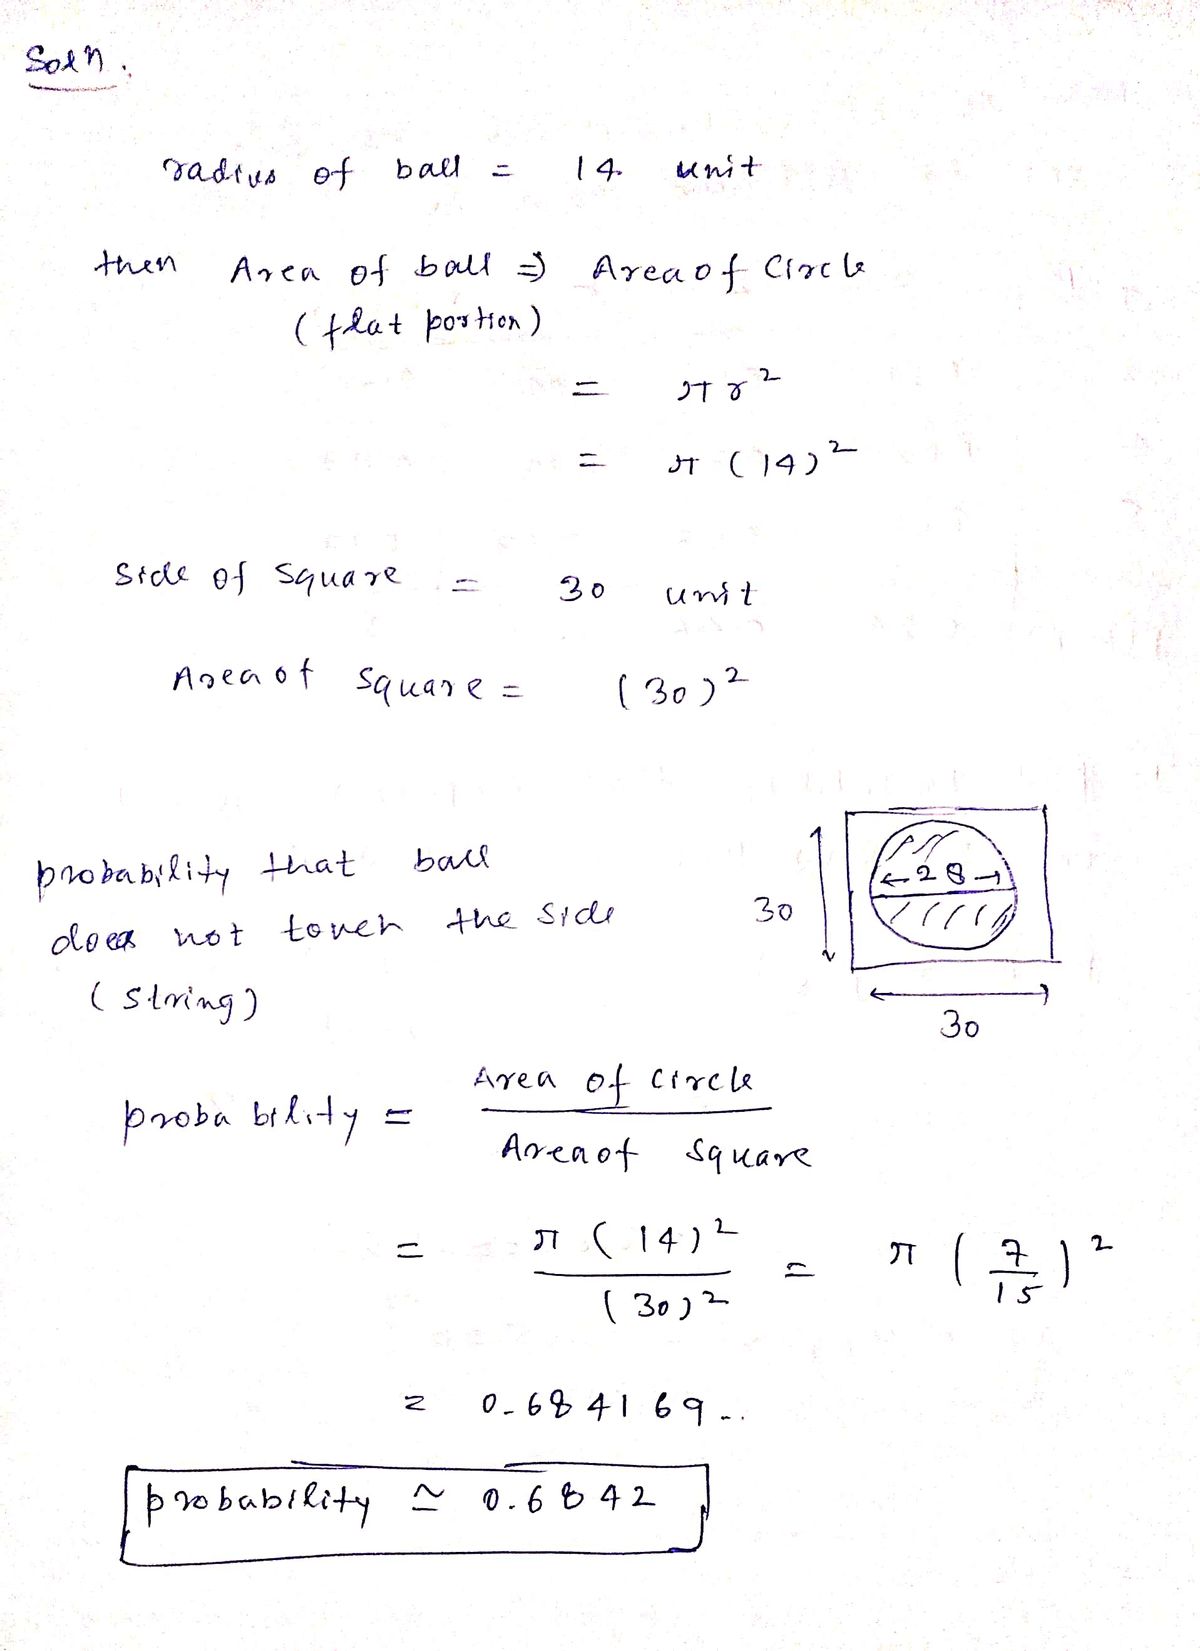 Soln.
radius of ball = 14 unit
then Area of ball ⇒ Area of Circle
(flat portion)
= πr²
= π(14)²
Side of Square = 30 unit
Area of Square = (30)²
probability that ball
does not touch the side
(string)
30
28
30
probability = Area of circle / Area of Square
= π(14)² / (30)² = π(7/15)²
= 0.684169..
probability ≃ 0.6842